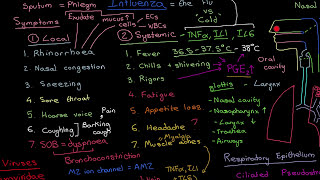 Sputum = Phlegm
Influenza = the Flu
vs
"Cold"
Nasal
Exudate
mucus↑
ECs
cells
WBCs
Symptoms
① Local
② Systemic
TNFα, IL1, IL6
1. Rhinorrhoea
2. Nasal congestion
3. Sneezing
4. Sore throat
5. Hoarse voice
Pain
6. Coughing
Barking cough
7. SOB = dyspnoea
Bronchoconstriction
M2 ion channel = AM2
1. Fever
36.5-37.5°C
38°C
2. Chills + shivering
3. Rigors
PGE2
4. Fatigue
5. Appetite loss
6. Headache
Myalgia
7. Muscle aches
TNFα, IL1
IL6
Oral cavity
Glottis - Larynx
- Nasal cavity
- Nasopharynx
- Larynx
- Trachea
- Airways
Viruses
Respiratory Epithelium
Ciliated Pseudostr